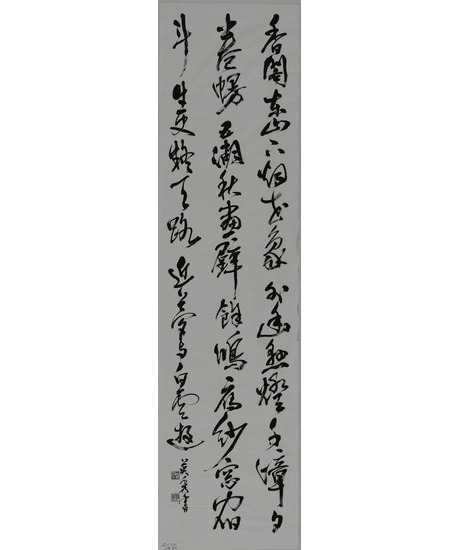 香閣東山下烟花象外幽懸燈千嶂夕
卷幔五湖秋畫壁餘鴻雁紗窗宿
斗牛更疑天路近夢與白雲遊